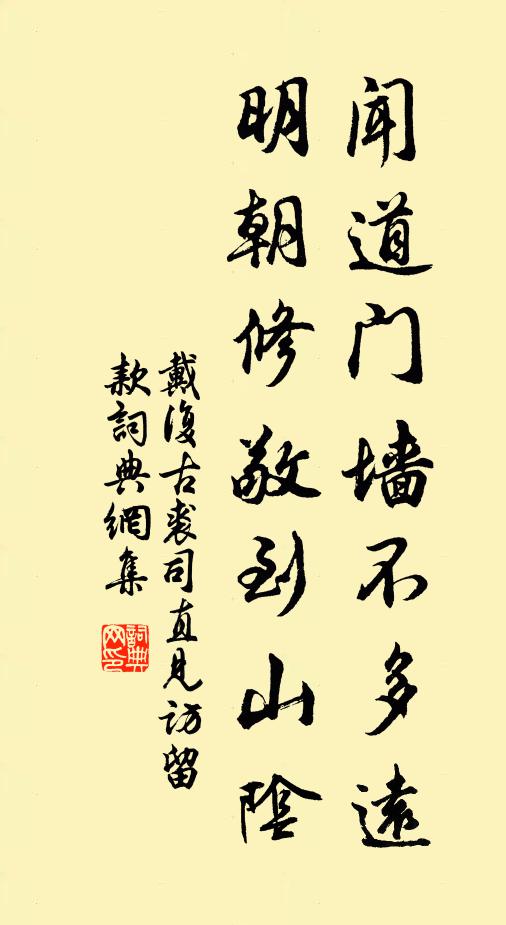 闻道门墙不多遠
明朝修敬到山陰
戴復古裘司直見訪留
款詞典網集
詞典
网印